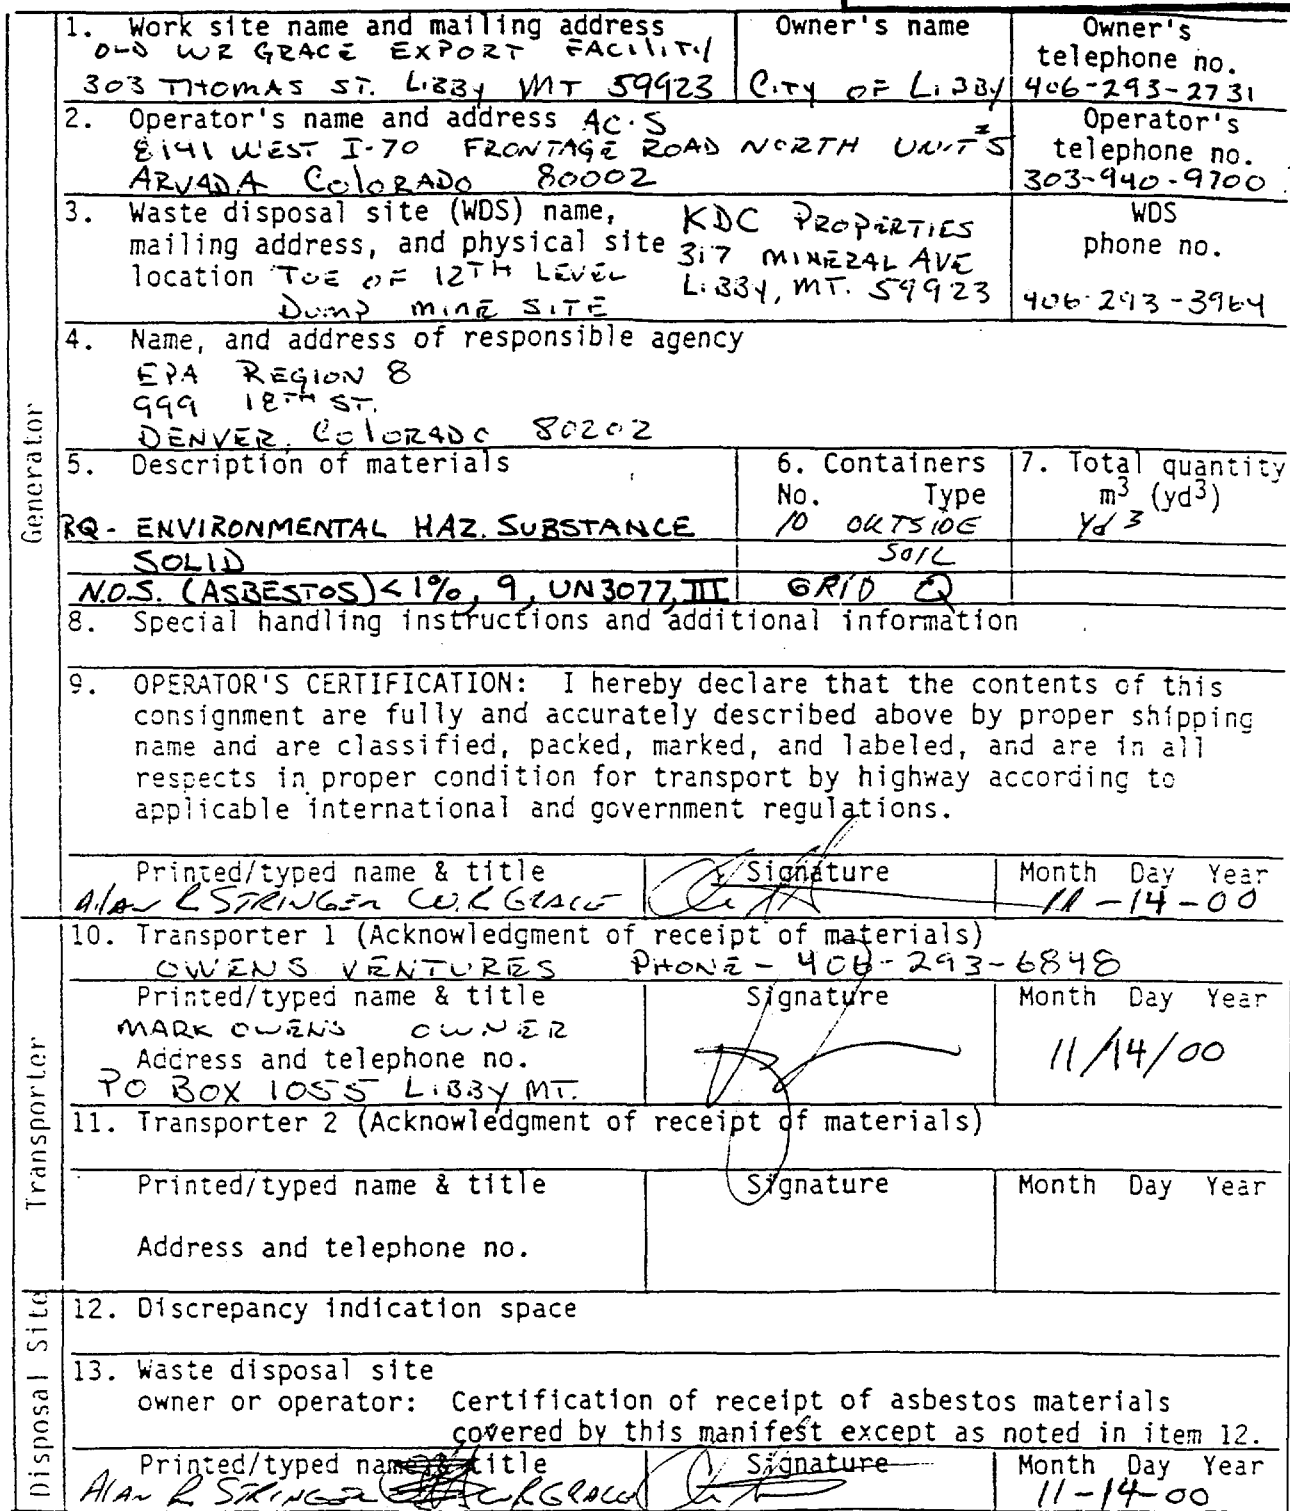 1. Work site name and mailing address
OLD WR GRACE EXPORT FACILITY
303 THOMAS ST. LIBBY MT 59923
Owner's name
CITY OF LIBBY
Owner's telephone no.
406-293-2731
2. Operator's name and address AC.S
8141 WEST I-70 FRONTAGE ROAD NORTH UNIT #5
ARVADA COLORADO 80002
Operator's telephone no.
303-940-9700
3. Waste disposal site (WDS) name,
mailing address, and physical site
location TOE OF 12TH LEVEL
DUMP MINE SITE
KDC PROPERTIES
317 MINERAL AVE
LIBBY, MT. 59923
WDS
phone no.
406-293-3964
4. Name, and address of responsible agency
EPA REGION 8
999 18TH ST.
DENVER, COLORADO 80202
5. Description of materials
6. Containers
No. Type
7. Total quantity
m3 (yd3)
RQ - ENVIRONMENTAL HAZ. SUBSTANCE
10 OUTSIDE
Yd3
SOLID
SOIL
N.O.S. (ASBESTOS) <1%, 9, UN3077, III
GRID Q
8. Special handling instructions and additional information
9. OPERATOR'S CERTIFICATION: I hereby declare that the contents of this
consignment are fully and accurately described above by proper shipping
name and are classified, packed, marked, and labeled, and are in all
respects in proper condition for transport by highway according to
applicable international and government regulations.
Printed/typed name & title
Signature
Month Day Year
Alan R STRINGER W.R GRACE
11-14-00
Generator
10. Transporter 1 (Acknowledgment of receipt of materials)
OWENS VENTURES PHONE - 406-293-6848
Printed/typed name & title
Signature
Month Day Year
MARK OWENS OWNER
11/14/00
Address and telephone no.
PO BOX 1055 LIBBY MT.
11. Transporter 2 (Acknowledgment of receipt of materials)
Printed/typed name & title
Signature
Month Day Year
Address and telephone no.
Transporter
12. Discrepancy indication space
13. Waste disposal site
owner or operator: Certification of receipt of asbestos materials
covered by this manifest except as noted in item 12.
Printed/typed name & title
Signature
Month Day Year
Alan R STRINGER W.R GRACE
11-14-00
Disposal Site